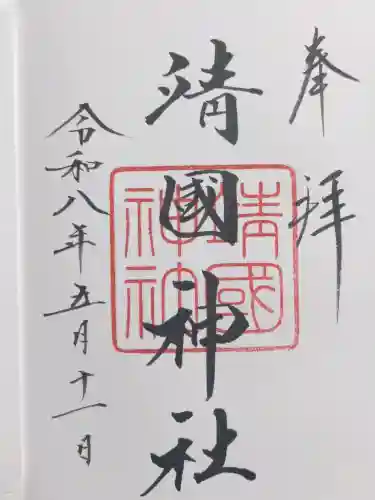 奉拝
靖國神社
靖國神社
令和八年五月十一日